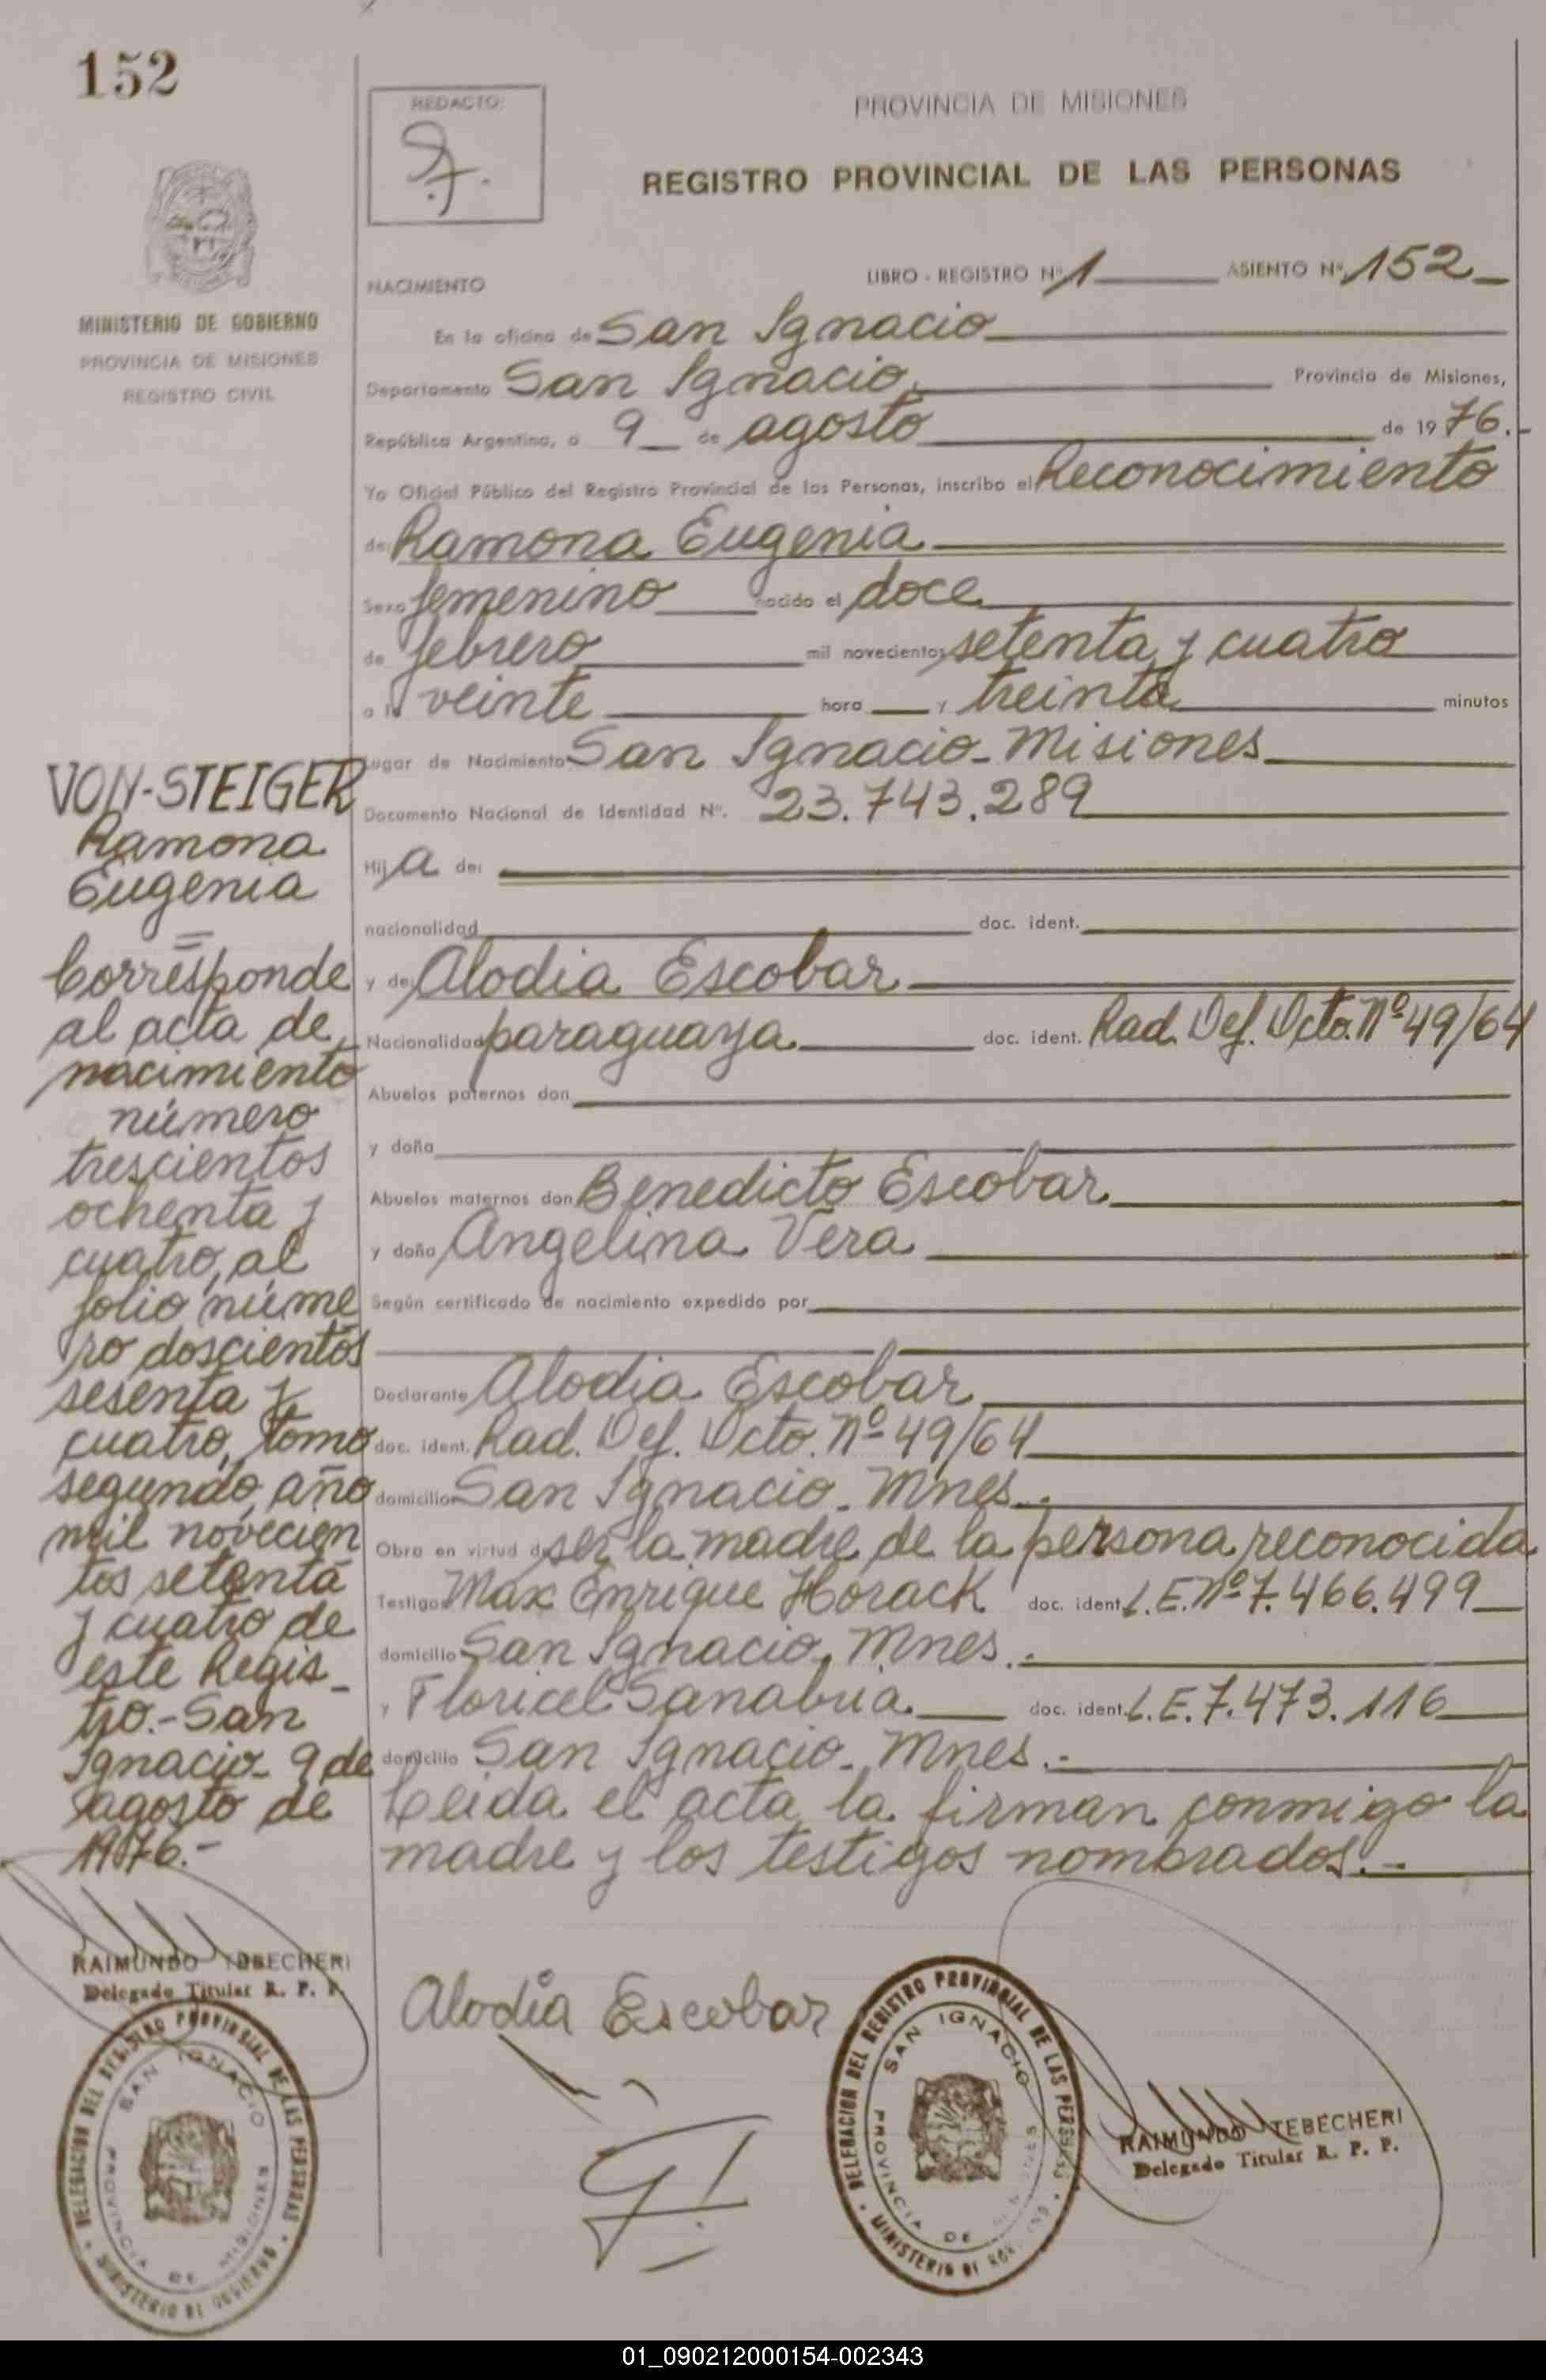 152
REDACTO:
PROVINCIA DE MISIONES
REGISTRO PROVINCIAL DE LAS PERSONAS
MINISTERIO DE GOBIERNO
PROVINCIA DE MISIONES
REGISTRO CIVIL
NACIMIENTO
LIBRO - REGISTRO Nº 1 ASIENTO Nº 152
En la oficina de San Ignacio
Departamento San Ignacio, Provincia de Misiones,
República Argentina, a 9 de agosto de 1976.-
Yo Oficial Público del Registro Provincial de las Personas, inscribo el Reconocimiento
de: Ramona Eugenia
Sexo femenino nacido el doce
de febrero mil novecientos setenta y cuatro
a las veinte hora y treinta minutos
Lugar de Nacimiento San Ignacio - Misiones
Documento Nacional de Identidad Nº. 23.743.289
Hija de:
nacionalidad doc. ident.
y de Alodia Escobar
Nacionalidad paraguaya. doc. ident. Rad. Def. Dcto. Nº 49/64
Abuelos paternos don
y doña
Abuelos maternos don Benedicto Escobar
y doña Angelina Vera
Según certificado de nacimiento expedido por
Declarante Alodia Escobar
doc. ident. Rad. Def. Dcto. Nº 49/64
domicilio San Ignacio - Mnes.-
Obra en virtud de ser la madre de la persona reconocida
Testigo Max Enrique Horack doc. ident. L.E. Nº 7.466.499
domicilio San Ignacio, Mnes.-
y Floricel Sanabria. doc. ident. L.E. 7.473.116
domicilio San Ignacio - Mnes.-
Leida el acta la firman conmigo la
madre y los testigos nombrados.-
VON-STEIGER
Ramona
Eugenia
Corresponde
al acta de
nacimiento
número
trescientos
ochenta y
cuatro, al
folio núme
ro doscientos
sesenta y
cuatro, tomo
segundo, año
mil novecien
tos setenta
y cuatro de
este Regis-
tro.- San
Ignacio - 9 de
agosto de
1976.-
RAIMUNDO TEBECHERI
Delegado Titular R. P. P.
DELEGACION DEL REGISTRO PROVINCIAL DE LAS PERSONAS
SAN IGNACIO
PROVINCIA DE MISIONES
MINISTERIO DE GOBIERNO
Alodia Escobar
DELEGACION DEL REGISTRO PROVINCIAL DE LAS PERSONAS
SAN IGNACIO
PROVINCIA DE MISIONES
MINISTERIO DE GOBIERNO
RAIMUNDO TEBECHERI
Delegado Titular R. P. P.
01_090212000154-002343